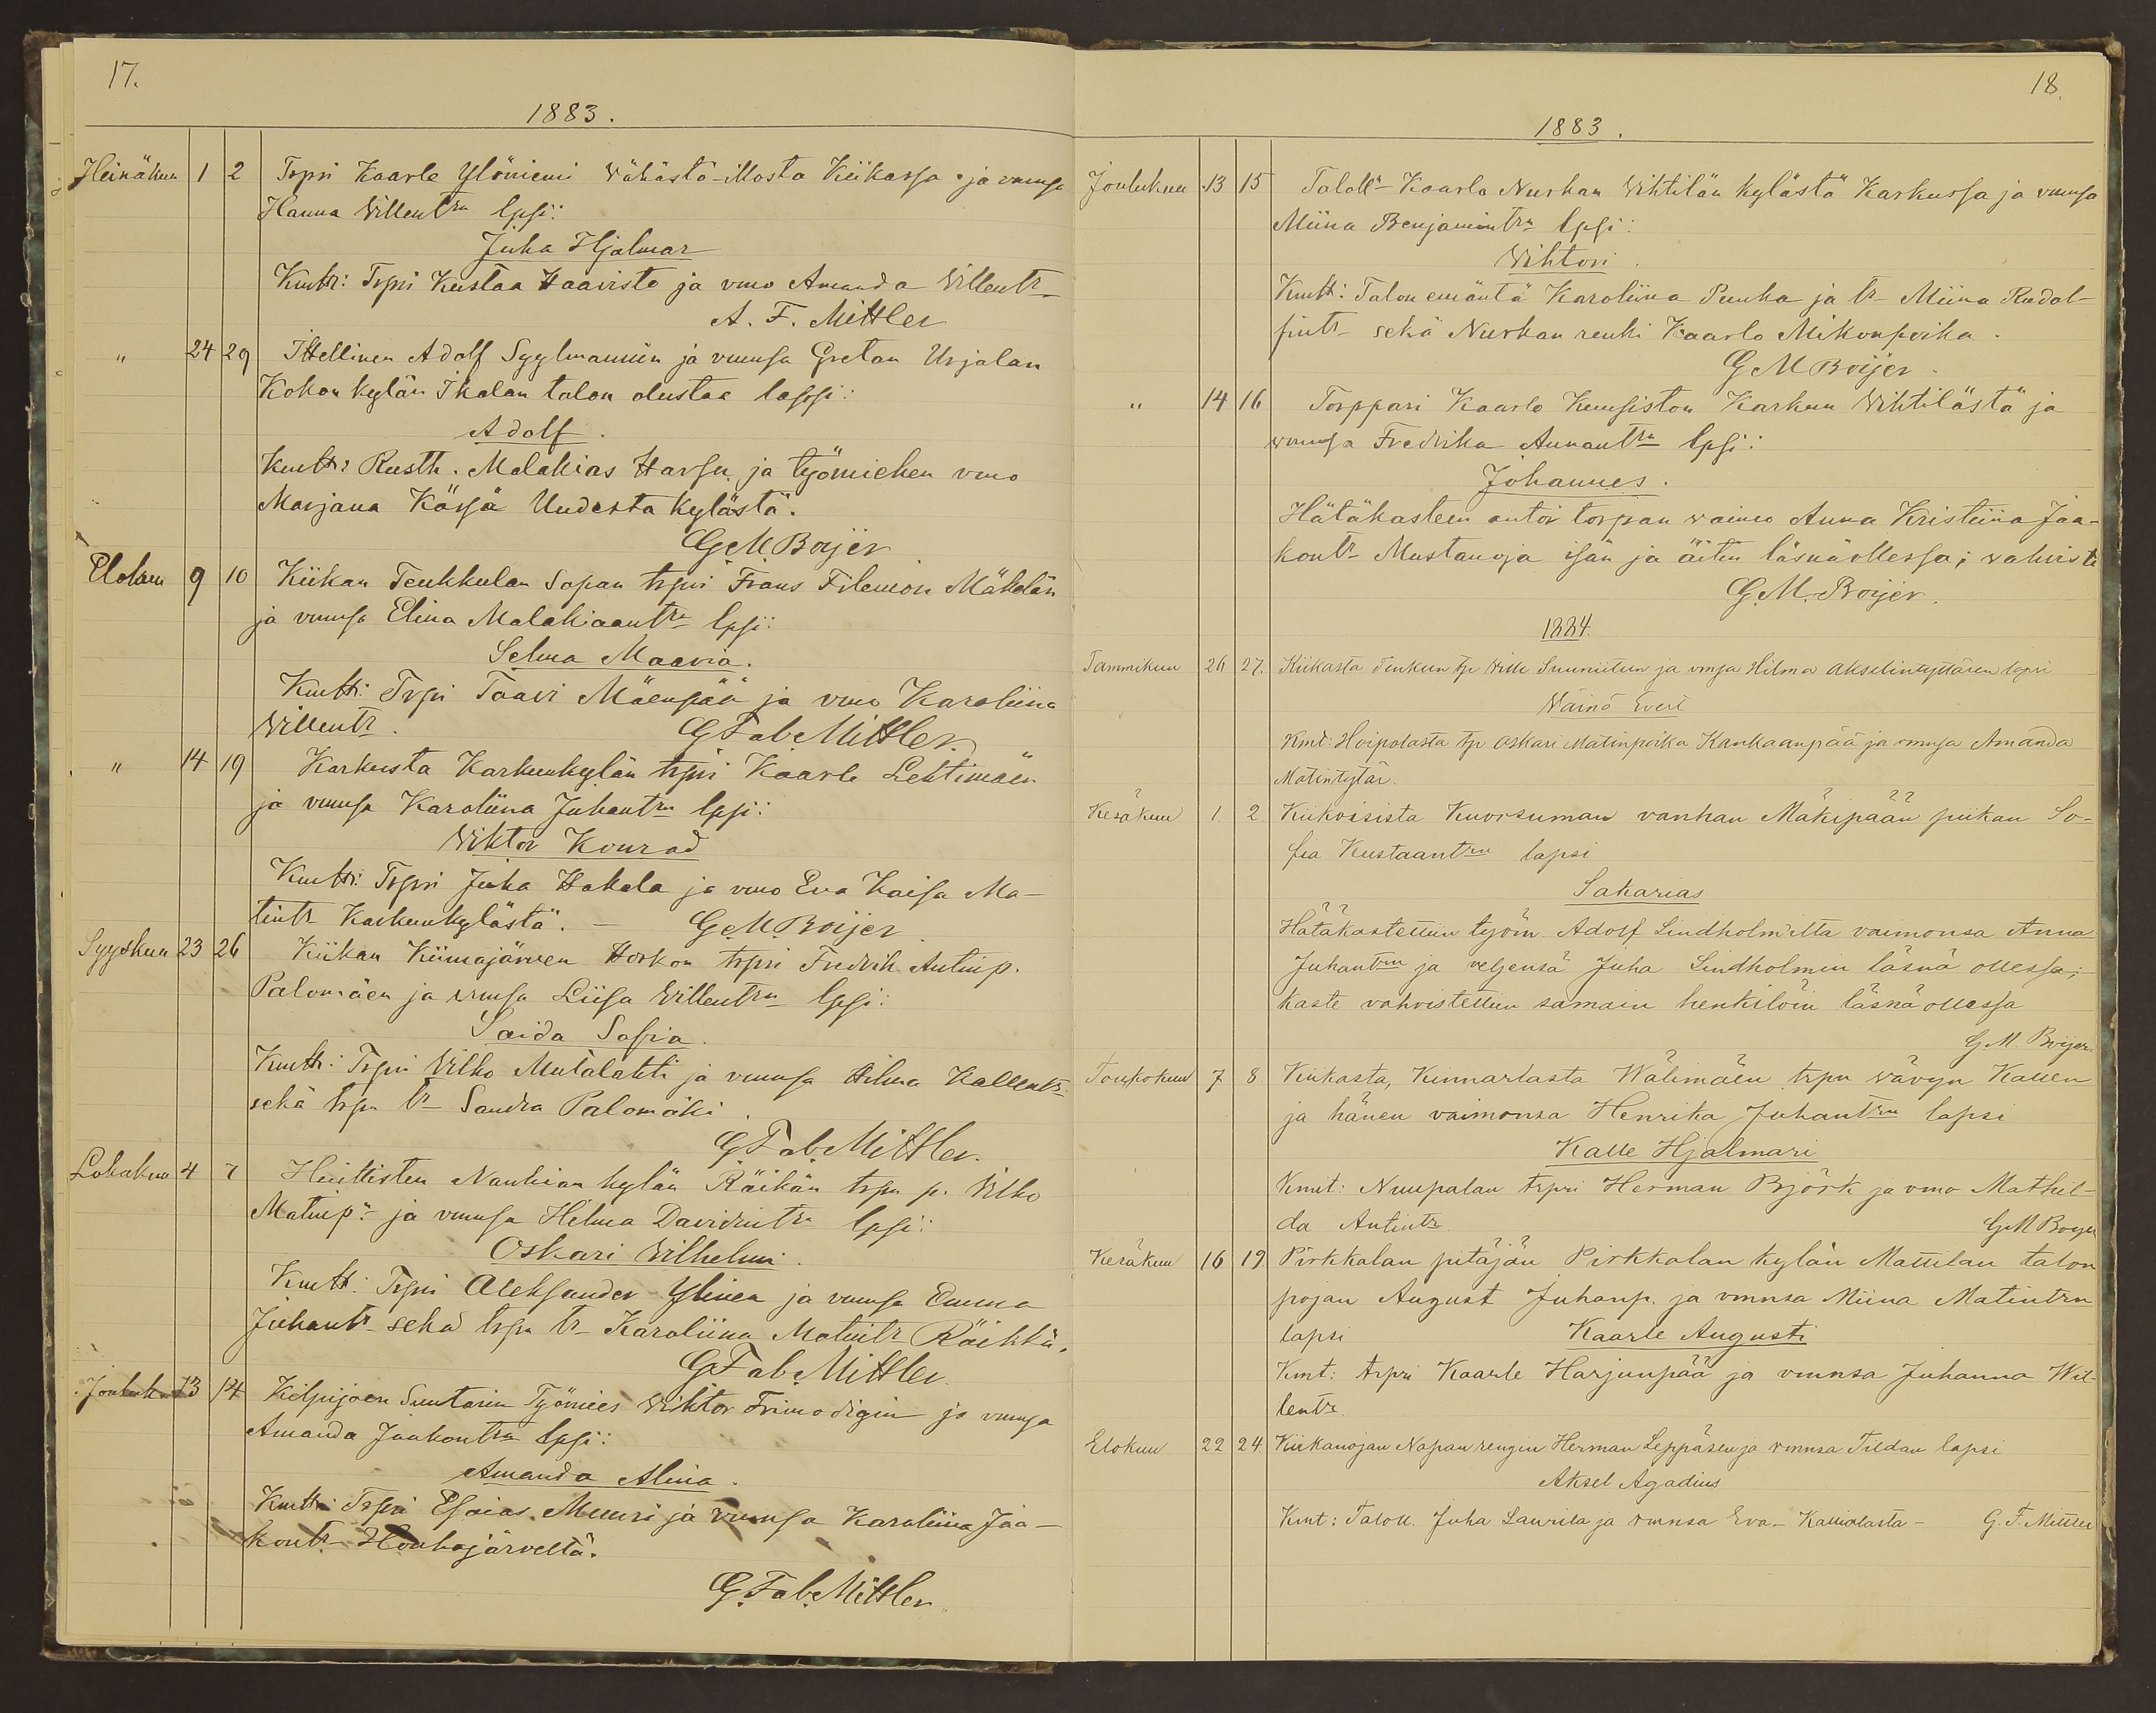 17.
1883.
Heinäkuu 1 2 Trpri Kaarle Ylöniemi Wähästä-Illosta Kiikassa ja vmnsa
Hanna Willentrn lpsi:
Juha Hjalmar
Kmtt: Trpri Kustaa Haavisto ja vmo Amanda Willentr
A. F. Mittler
" 24 29 Itellinen Adolf Syglmannin ja vmnsa Gretan Urjalan
Kokon kylän Ikalan talon alustaa lapsi:
Adolf.
Kmtt: Rusth. Malakias Harsu ja työmiehen vmo
Marjana Kärsä Uudesta kylästä.
G M Boijer
Elokuu 9 10 Kiikan Teukkulan Sapan trpri Frans Filemon Mäkelän
ja vmnsa Elina Malakiaantrn lpsi:
Selma Maaria.
Kmtt: Trpri Taavi Mäenpää ja vmo Karoliina
Willentr. G Fab. Mittler.
" 14 19 Karkusta Karkunkylän trpri Kaarle Lehtimäen
ja vmnsa Karoliina Juhantrn lpsi:
Wiktor Konrad
Kmtt: Trpri Juha Hakala ja vmo Eva Kaisa Ma-
tintr Karkunkylästä. — G. M. Boijer
Syyskuu 23 26 Kiikan Kiimajärven Horkon trpri Fredrik Antinp.
Palomäen ja vmnsa Liisa Willentrn lpsi:
Saida Sofia.
Kmtt: Trpri Vilho Mutalahti ja vmnsa Hilma Kallentr
sekä trpn tr Sandra Palomäki.
G Fab. Mittler.
Lokakuu 4 7 Huittisten Nanhian kylän Räikän trpn p. Vilho
Matinp. ja vmnsa Hilma Davidintrn lpsi:
Oskari Vilhelmi.
Kmtt: Trpri Aleksander Ylinen ja vmnsa Emma
Juhantr sekä trpn tr Karoliina Matintr Räikkä.
G Fab. Mittler
Jouluk. 13 14 Kilpijoen Suutarin Työmies Wiktor Frimodigin ja vmnsa
Amanda Jaakontrn lpsi:
Amanda Alina.
Kmtt: Trpri Esaias Muuri ja vmnsa Karoliina Jaa-
kontr Houhajärveltä.
G. Fab. Mittler
18.
1883.
Joulukuu 13 15 Taloll- Kaarlo Nurhan Wihtilän kylästä Karkussa ja vmnsa
Miina Benjamintrn lpsi:
Wihtori.
Kmtt: Talon emäntä Karoliina Punka ja tr Miina Rudol-
fintr sekä Nurhan renki Kaarlo Mikonpoika.
G M Boijer.
" 14 16 Torppari Kaarlo Kuusiston Karkun Wihtilästä ja
vmnsa Fredrika Annantrn lpsi:
Johannes.
Hätäkasteen antoi torpan vaimo Anna Kristiina Jaa-
kontr Mustanoja isän ja äitin läsnäollessa; wahvisti
G. M. Boijer.
1884.
Tammikuu 26 27. Kiikasta Teukun tp Wille Suuniitun ja vmsa Hilma Akselintyttären lapsi
Wäinö Evert
Kmt: Hoipolasta tp Oskari Matinpoika Kankaanpää ja vmnsa Amanda
Matintytär.
Kesäkuu 1. 2. Kiikoisista Kuorsuman vanhan Mäkipään piikan So-
fia Kustaantrn lapsi
Sakarias
Hätäkastettiin työm. Adolf Lindholm'ilta vaimonsa Anna
Juhantrn ja veljensä Juha Lindholmin läsnä ollessa;
kaste vahvistettiin samain henkilöin läsnä ollessa
G. M. Boijer.
Toukokuu 7 8. Kiikasta, Kinnarlasta Wälimäen trpn vävyn Kallen
ja hänen vaimonsa Henrika Juhantrn lapsi
Kalle Hjalmari
Kmt: Nuupalan trpri Herman Björk ja vmo Mathil-
da Antintr. G M Boijer
Kesäkuu 16 19 Pirkkalan pitäjän Pirkkalan kylän Mattilan talon
pojan August Juhanp. ja vmnsa Miina Matintrn
lapsi Kaarle Augusti
Kmt: trpri Kaarle Harjunpää ja vmnsa Juhanna Wil-
lentr.
Elokuu 22 24. Kiikanojan Napan rengin Herman Leppäsen ja vmnsa Tildan lapsi
Aksel Agadius
Kmt: Taloll. Juha Laurila ja vmnsa Eva - Kalliolasta - G. F. Mittler